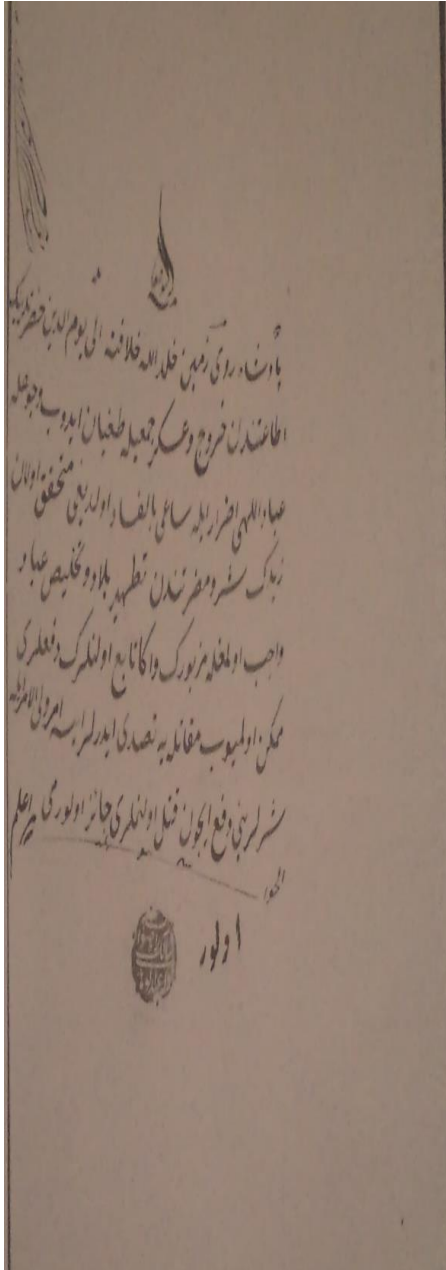 پادشاه روی زمین خلد الله خلافته الی یوم الدین حضرتلرینك
اطاعتندن خروج و عسکر جمعیله طغیان ایدوب و جوعله
عباد اللهی اضرار ایله ساعی بالفساد اولدیغی متحقق اولان
زیدك شر و مضرتندن تطهیر بلاد و تخلیص عباد
واجب اولمغله مزبورك و اکا تابع اولنلرك دفعلری
ممکن اولمیوب مقاتله یه تصدی ایدرلر ایسه امر ولی الامرله
شرلرینی دفع ایچون قتل اولنملری جائز اولورمی
الجواب
اولور